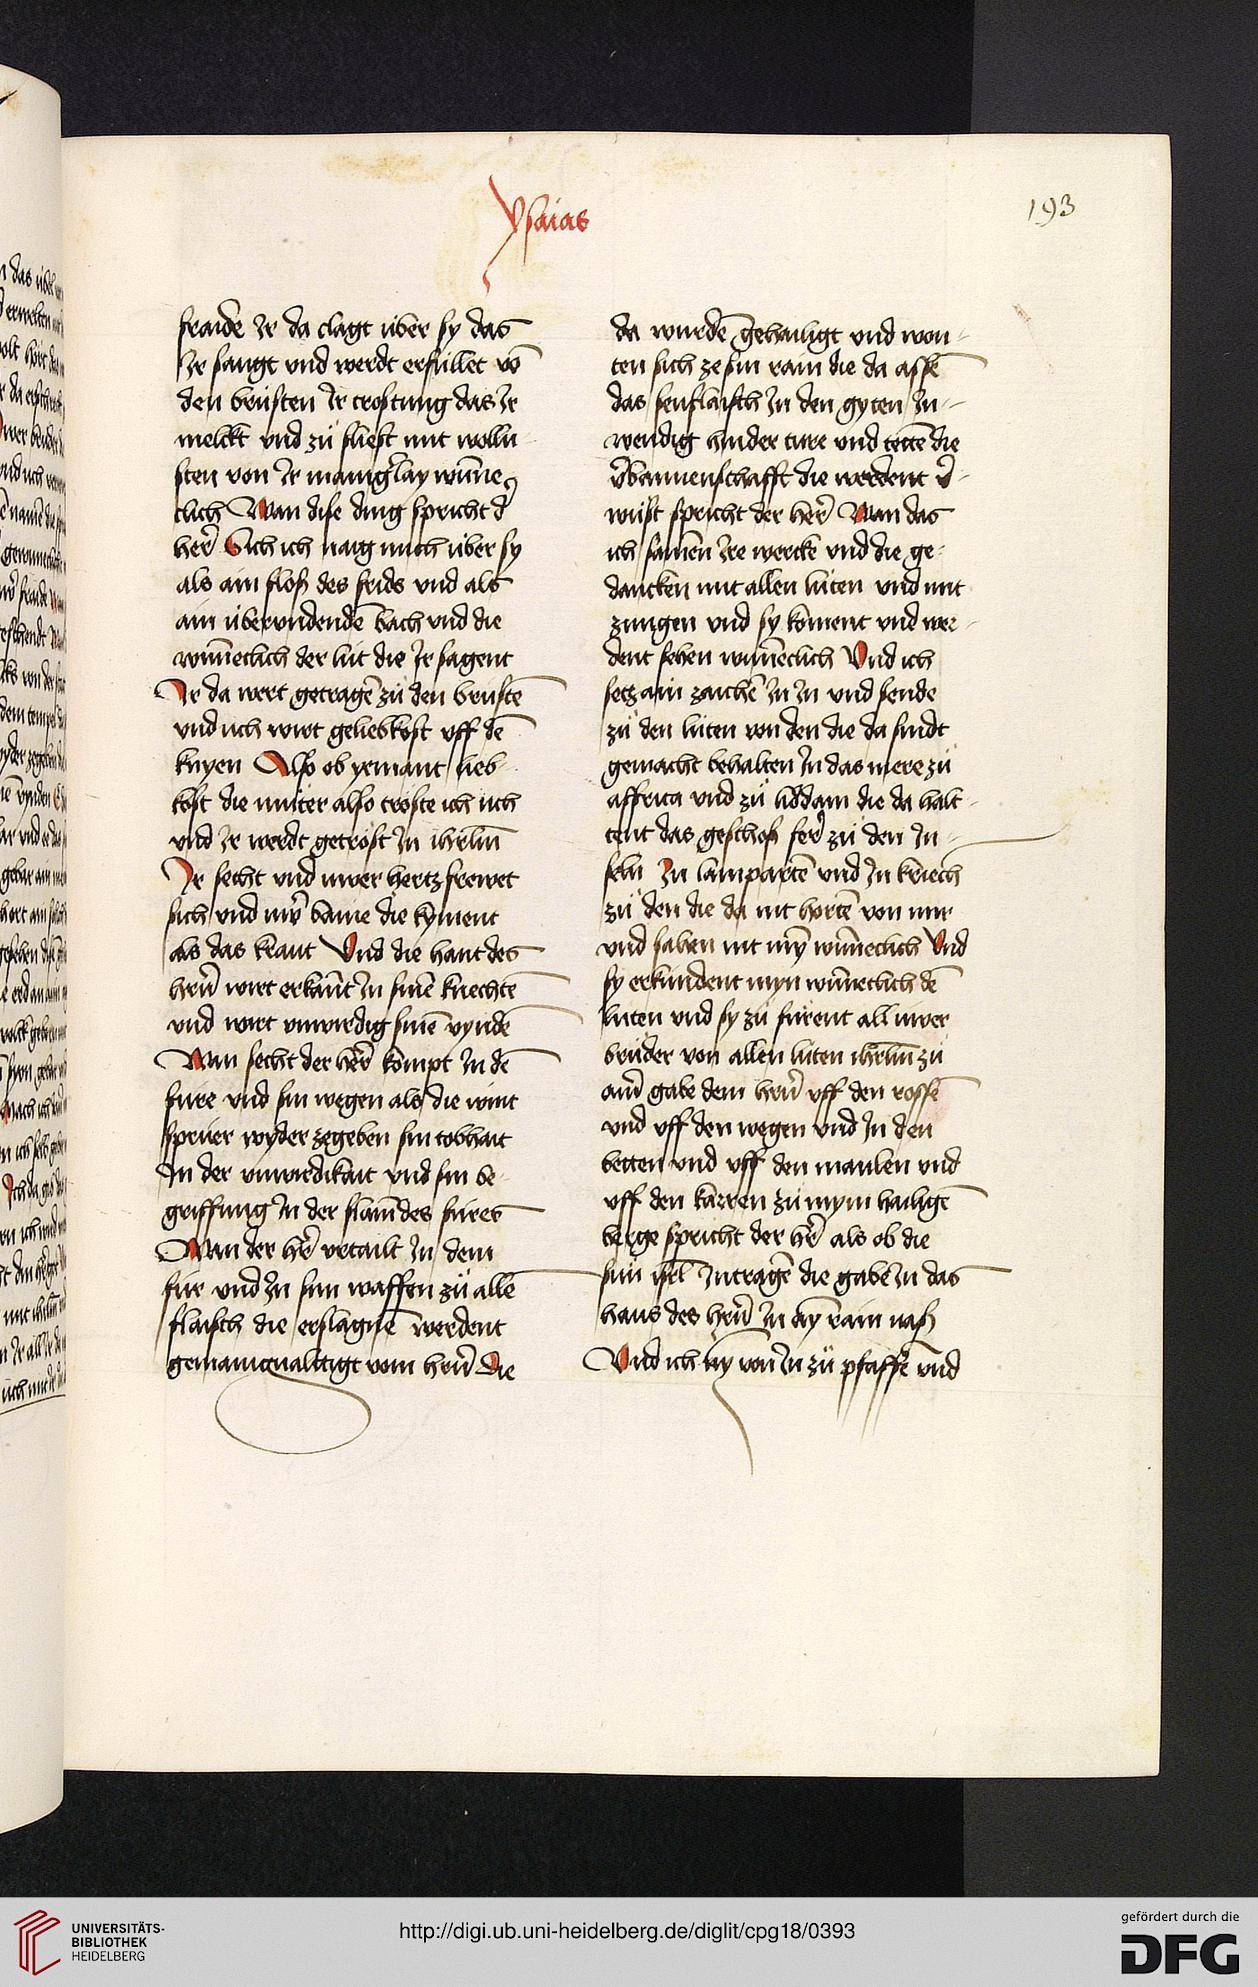 Ysaias
193
fraide Ir da clagt über sy das
Ir saugt vnd werdt erfüllet vō
den brüsten Ir trostung das Ir
melckt vnd zů fliest mit wollu
sten von Ir manigerlay wūne
clich Wan dise ding spricht d̄
her̄ Sich ich naig mich über sy
als ain floss des frids vnd als
ain überundendē bach vnd die
wūneclich der lüt die Ir sagent
Ir da wert getragē zů den brüstē
vnd üch wirt geliebkost vff dē
knyen Also ob yemant lieb
kost die muter also tröste ich üch
vnd Ir werdt getröst In ihrlm̄
Ir secht vnd üwer hertz frewet
sich vnd üwr̄ baine die kyment
als das kraut Vnd die hant des
hrn̄ wirt erkāntIn sinē knechtē
vnd wirt vnwirdig sinē vyndē
Wan secht der her̄ kompt In dē
füre vnd sin wegen als die wint
sprüer wyder zegeben sin tobhait
In der vnwirdikait vnd sin be
griffung In der flām des fures
Wan der her̄ vrtailt In dem
für vnd In sim waffen zů allē
flaisch die erslagnē werdent
gemanigualttigt vom hrn̄ Die
da wurdē gehailigt vnd won-
ten sich ze sin rain die da assē
das seuflaisch In den gyten In-
wendig hinder ture vnd
die werdent v̄-
wüst spricht der her̄ Wan das
ich samen Ire wercke vnd die ge-
dancken mit allen lüten vnd mit
zungen vnd sy koment vnd wer-
dent sehen mein wūneclich Vnd ich
setz ain zaichē In In vnd sende
zů den lüten von den die da sindt
gemacht behalten In das mere zů
affrica vnd zů liddam die da halt-
tent das geschoss ferr zů den In-
seln In lampartē vnd In kriech
zů den die da nit hortē von mir
vnd sahen nit mȳ wūneclich Vnd
sy erkundent myn wūneclich dē
lüten vnd sy zů fürent all üwer
brüder von allen lüten ihrlm̄ zů
ainr̄ gabe dem hrn̄ vff den rossē
vnd vff den wegen vnd In den
betten vnd vff den maulen vnd
vff den karren zů mym hailigē
berge spricht der her̄ als ob die
sün isrl̄ Intragē die gabe In das
haus des hrn̄ In aȳ rain vass
Vnd ich nȳ von In zů pfaffē vnd
UNIVERSITÄTS-
BIBLIOTHEK
HEIDELBERG
http://digi.ub.uni-heidelberg.de/diglit/cpg18/0393
gefördert durch die
DFG